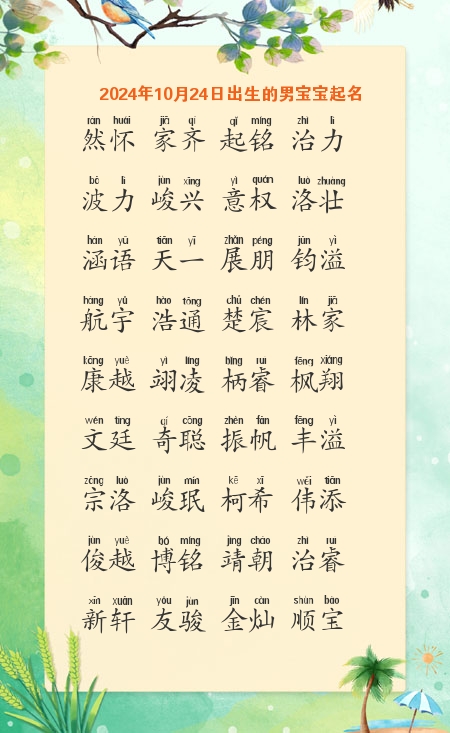 2024年10月24日出生的男宝宝起名
rán huái jiā qí qǐ míng zhì lì
然怀 家齐 起铭 治力
bō lì jùn xīng yì quán luò zhuàng
波力 峻兴 意权 洛壮
hán yǔ tiān yī zhǎn péng jūn yì
涵语 天一 展朋 钧溢
háng yǔ hào tōng chǔ chén lín jiā
航宇 浩通 楚宸 林家
kāng yuè yì líng bǐng ruì fēng xiáng
康越 翊凌 柄睿 枫翔
wén tíng qí cōng zhèn fān fēng yì
文廷 奇聪 振帆 丰溢
zōng luò jùn mín kē xī wěi tiān
宗洛 峻珉 柯希 伟添
jùn yuè bó míng jìng cháo zhì ruì
俊越 博铭 靖朝 治睿
xīn xuān yǒu jùn jīn càn shùn bǎo
新轩 友骏 金灿 顺宝